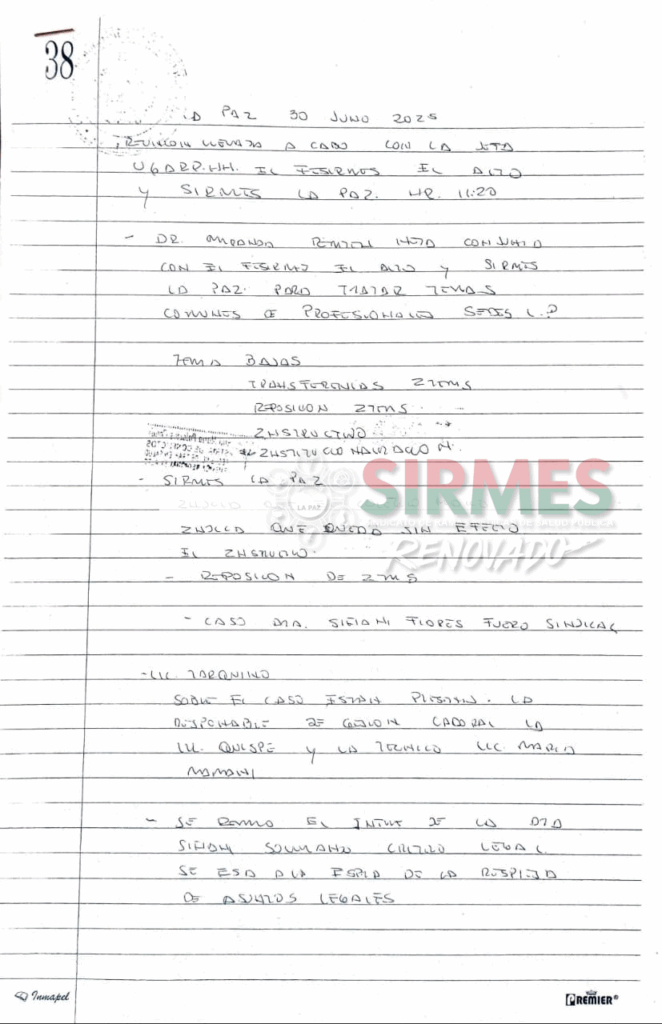 38
LA PAZ 30 JUNIO 2025
REUNION LLEVADA A CABO CON LA JEFA
UGARR.HH. EL FESIRMES EL ALTO
Y SIRMES LA PAZ. HR. 11:20
- DR. MIRANDA CONJUNTA
CON EL FESIRMES EL ALTO Y SIRMES
LA PAZ. PARA TRATAR TEMAS
COMUNES DE PROFESIONALES SEDES L.P
TEMA BAJAS
TRANSFERENCIAS ITEMS
REPOSICION ITEMS.
INSTRUCTIVO
INSTITUCIONALIZACION.
- SIRMES LA PAZ
SIRMES
LA PAZ
RENOVADO
INDICA QUE QUEDA SIN EFECTO
EL INSTRUCTIVO.
- REPOSICION DE ITEMS
- CASO DRA. SIÑANI FLORES FUERO SINDICAL
- LIC. TARQUINO
SOBRE EL CASO ESTAN LA
RESPONSABLE DE GESTION LABORAL LA
LIC. QUISPE Y LA TECNICO LIC. MARIA
MAMANI
- SE EL DE LA DRA
SIÑANI CRITERIO LEGAL.
SE ESTA A LA ESPERA DE LA RESPUESTA
DE ASUNTOS LEGALES
Inmapel
PREMIER®